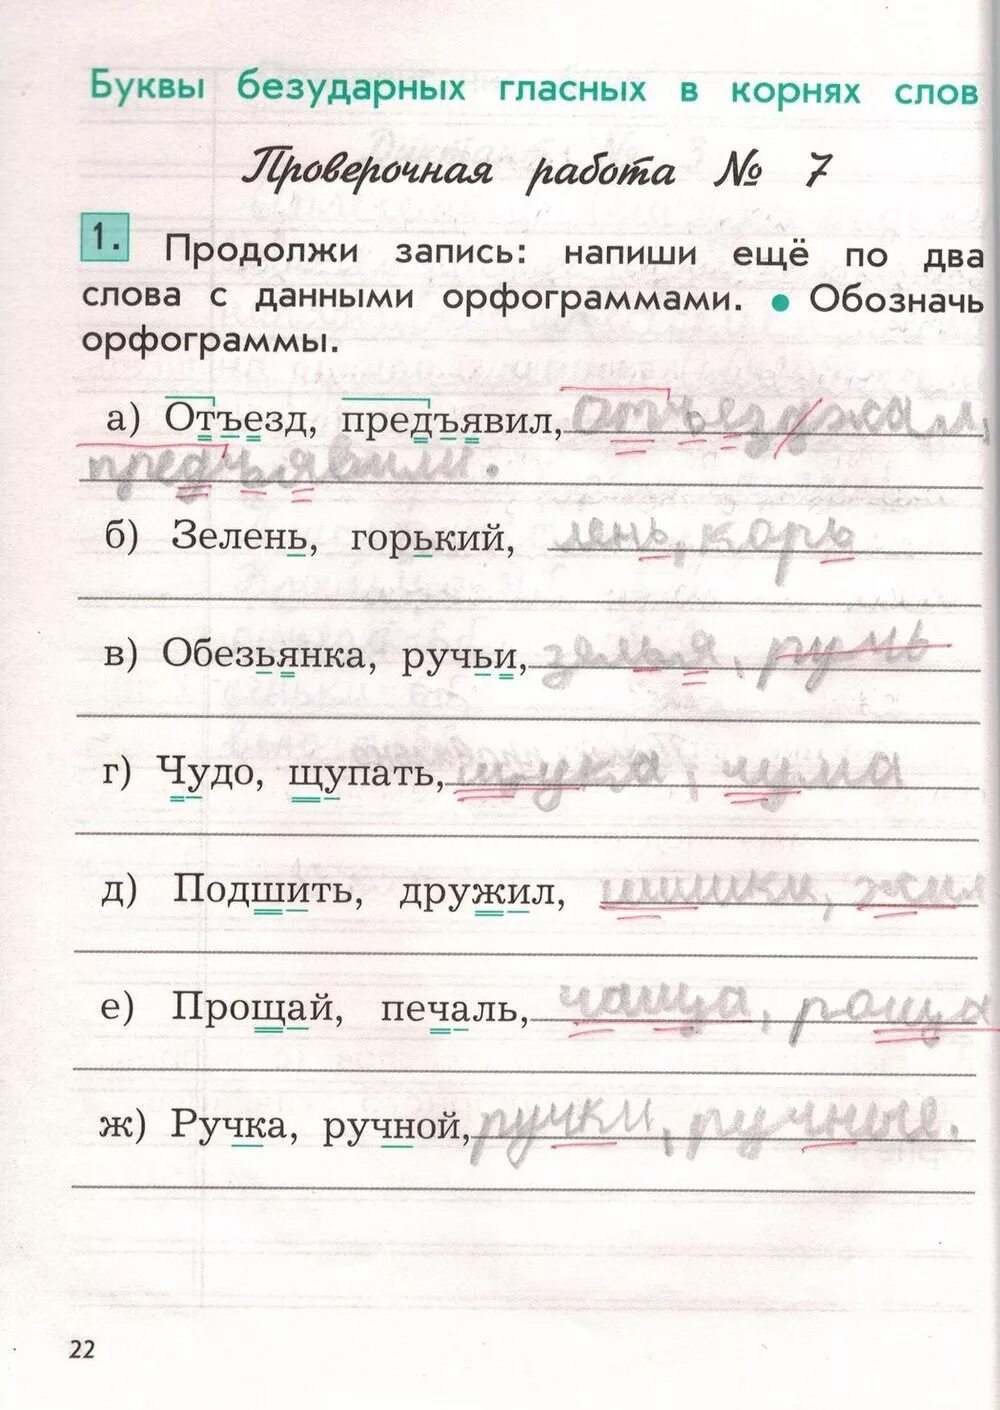 Буквы безударных гласных в корнях слов
Проверочная работа № 7
1. Продолжи запись: напиши ещё по два
слова с данными орфограммами. • Обозначь
орфограммы.
а) Отъезд, предъявил, отъезджал,
предъявили.
б) Зелень, горький, лень, корь
в) Обезьянка, ручьи, зелья, ручь
г) Чудо, щупать, щука, чума
д) Подшить, дружил, шишки, жил
е) Прощай, печаль, чаща, роща
ж) Ручка, ручной, ручки, ручные.
22